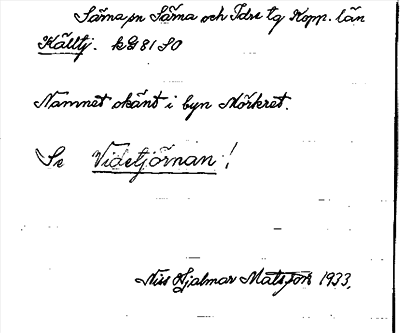 Särna sn Särna och Idre tg Kopp. län
Källtj. kG 81 SO
Namnet okänt i byn Mörkret.
Se Videtjörnan!
Nils Hjalmar Matsson 1933.